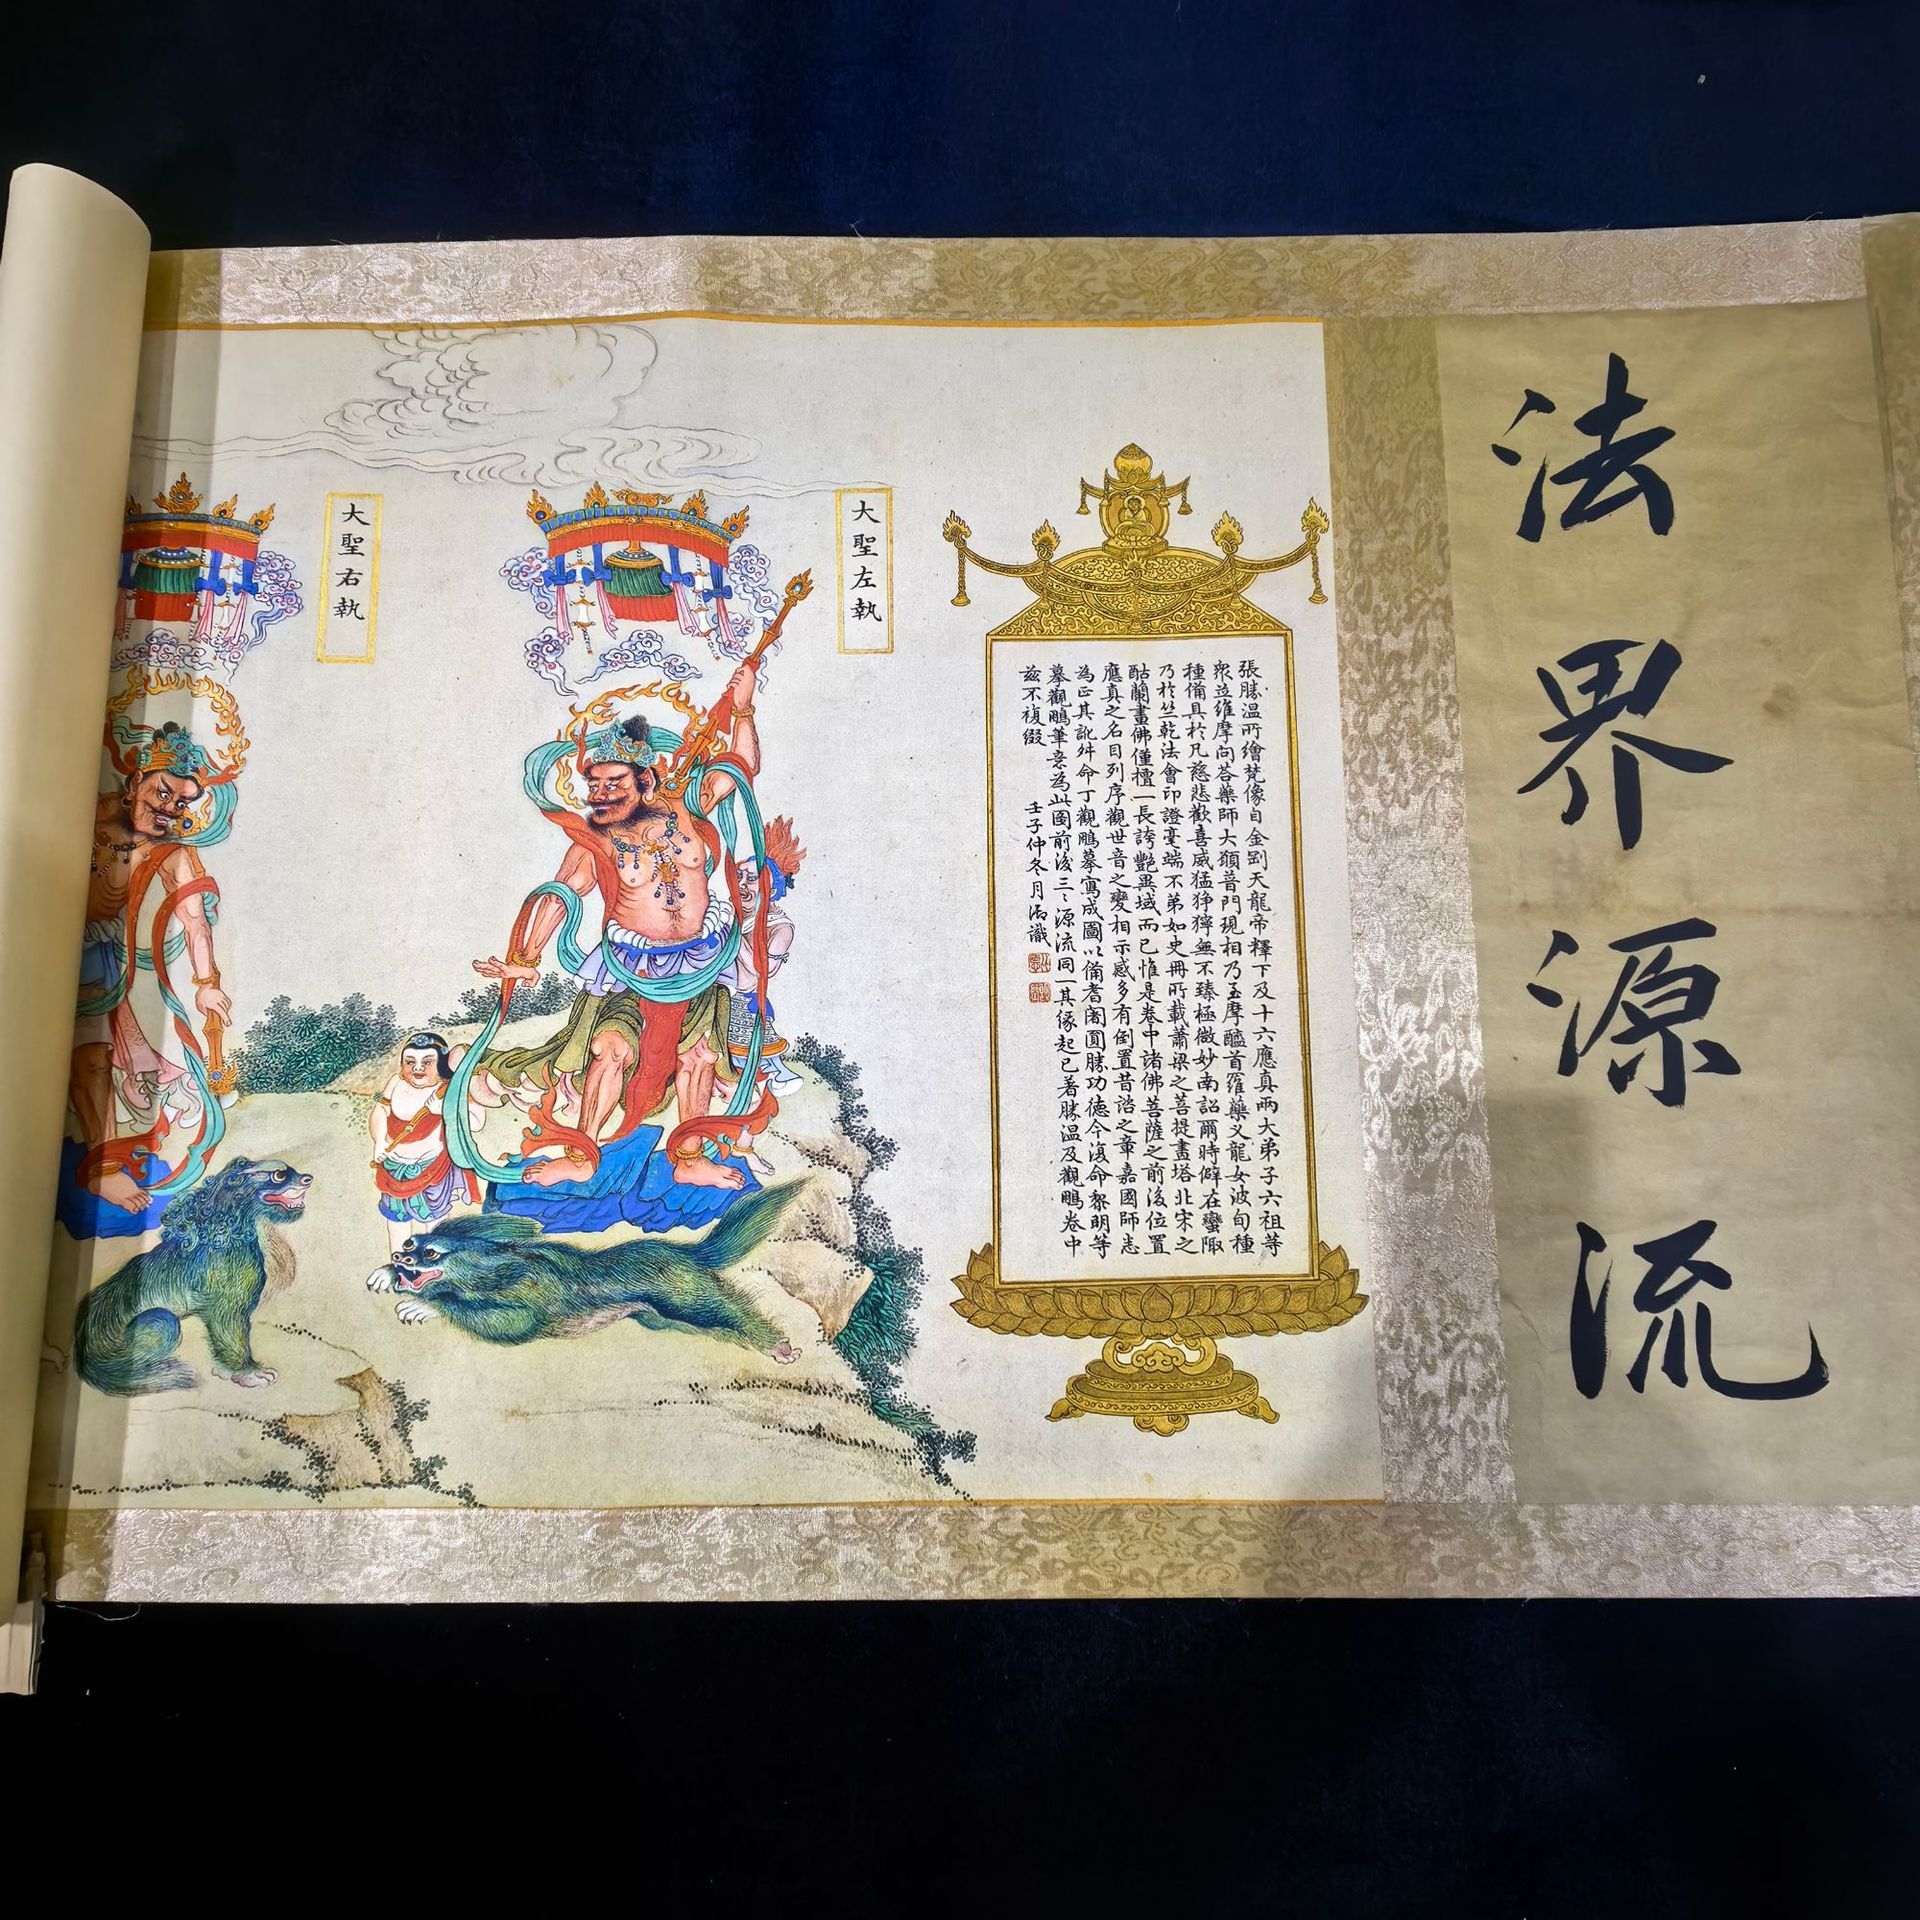 法界源流
張勝溫所繪梵像自金剛天龍帝釋下及十六應真兩大弟子六祖等
衆並維摩向荅藥師大願普門現相乃至摩醯首羅藥义龍女波旬種
種備具於凡慈悲歡喜威猛猙獰無不臻極微妙南詔爾時僻在蠻陬
乃於竺乾法會印證毫端不弟如史冊所載蕭梁之菩提畫塔北宋之
酤蘭畫佛僅擅一長誇艷異域而已惟是卷中諸佛菩薩之前後位置
應真之名目列序觀世音之變相示感多有倒置昔諮之章嘉國師悉
為正其訛舛命丁觀鵬摹寫成圖以備耆闍圓勝功德今復命黎明等
摹觀鵬筆意為此圖前後三〻源流同一其緣起已著勝溫及觀鵬卷中
茲不複綴
壬子仲冬月御識
大聖左執
大聖右執